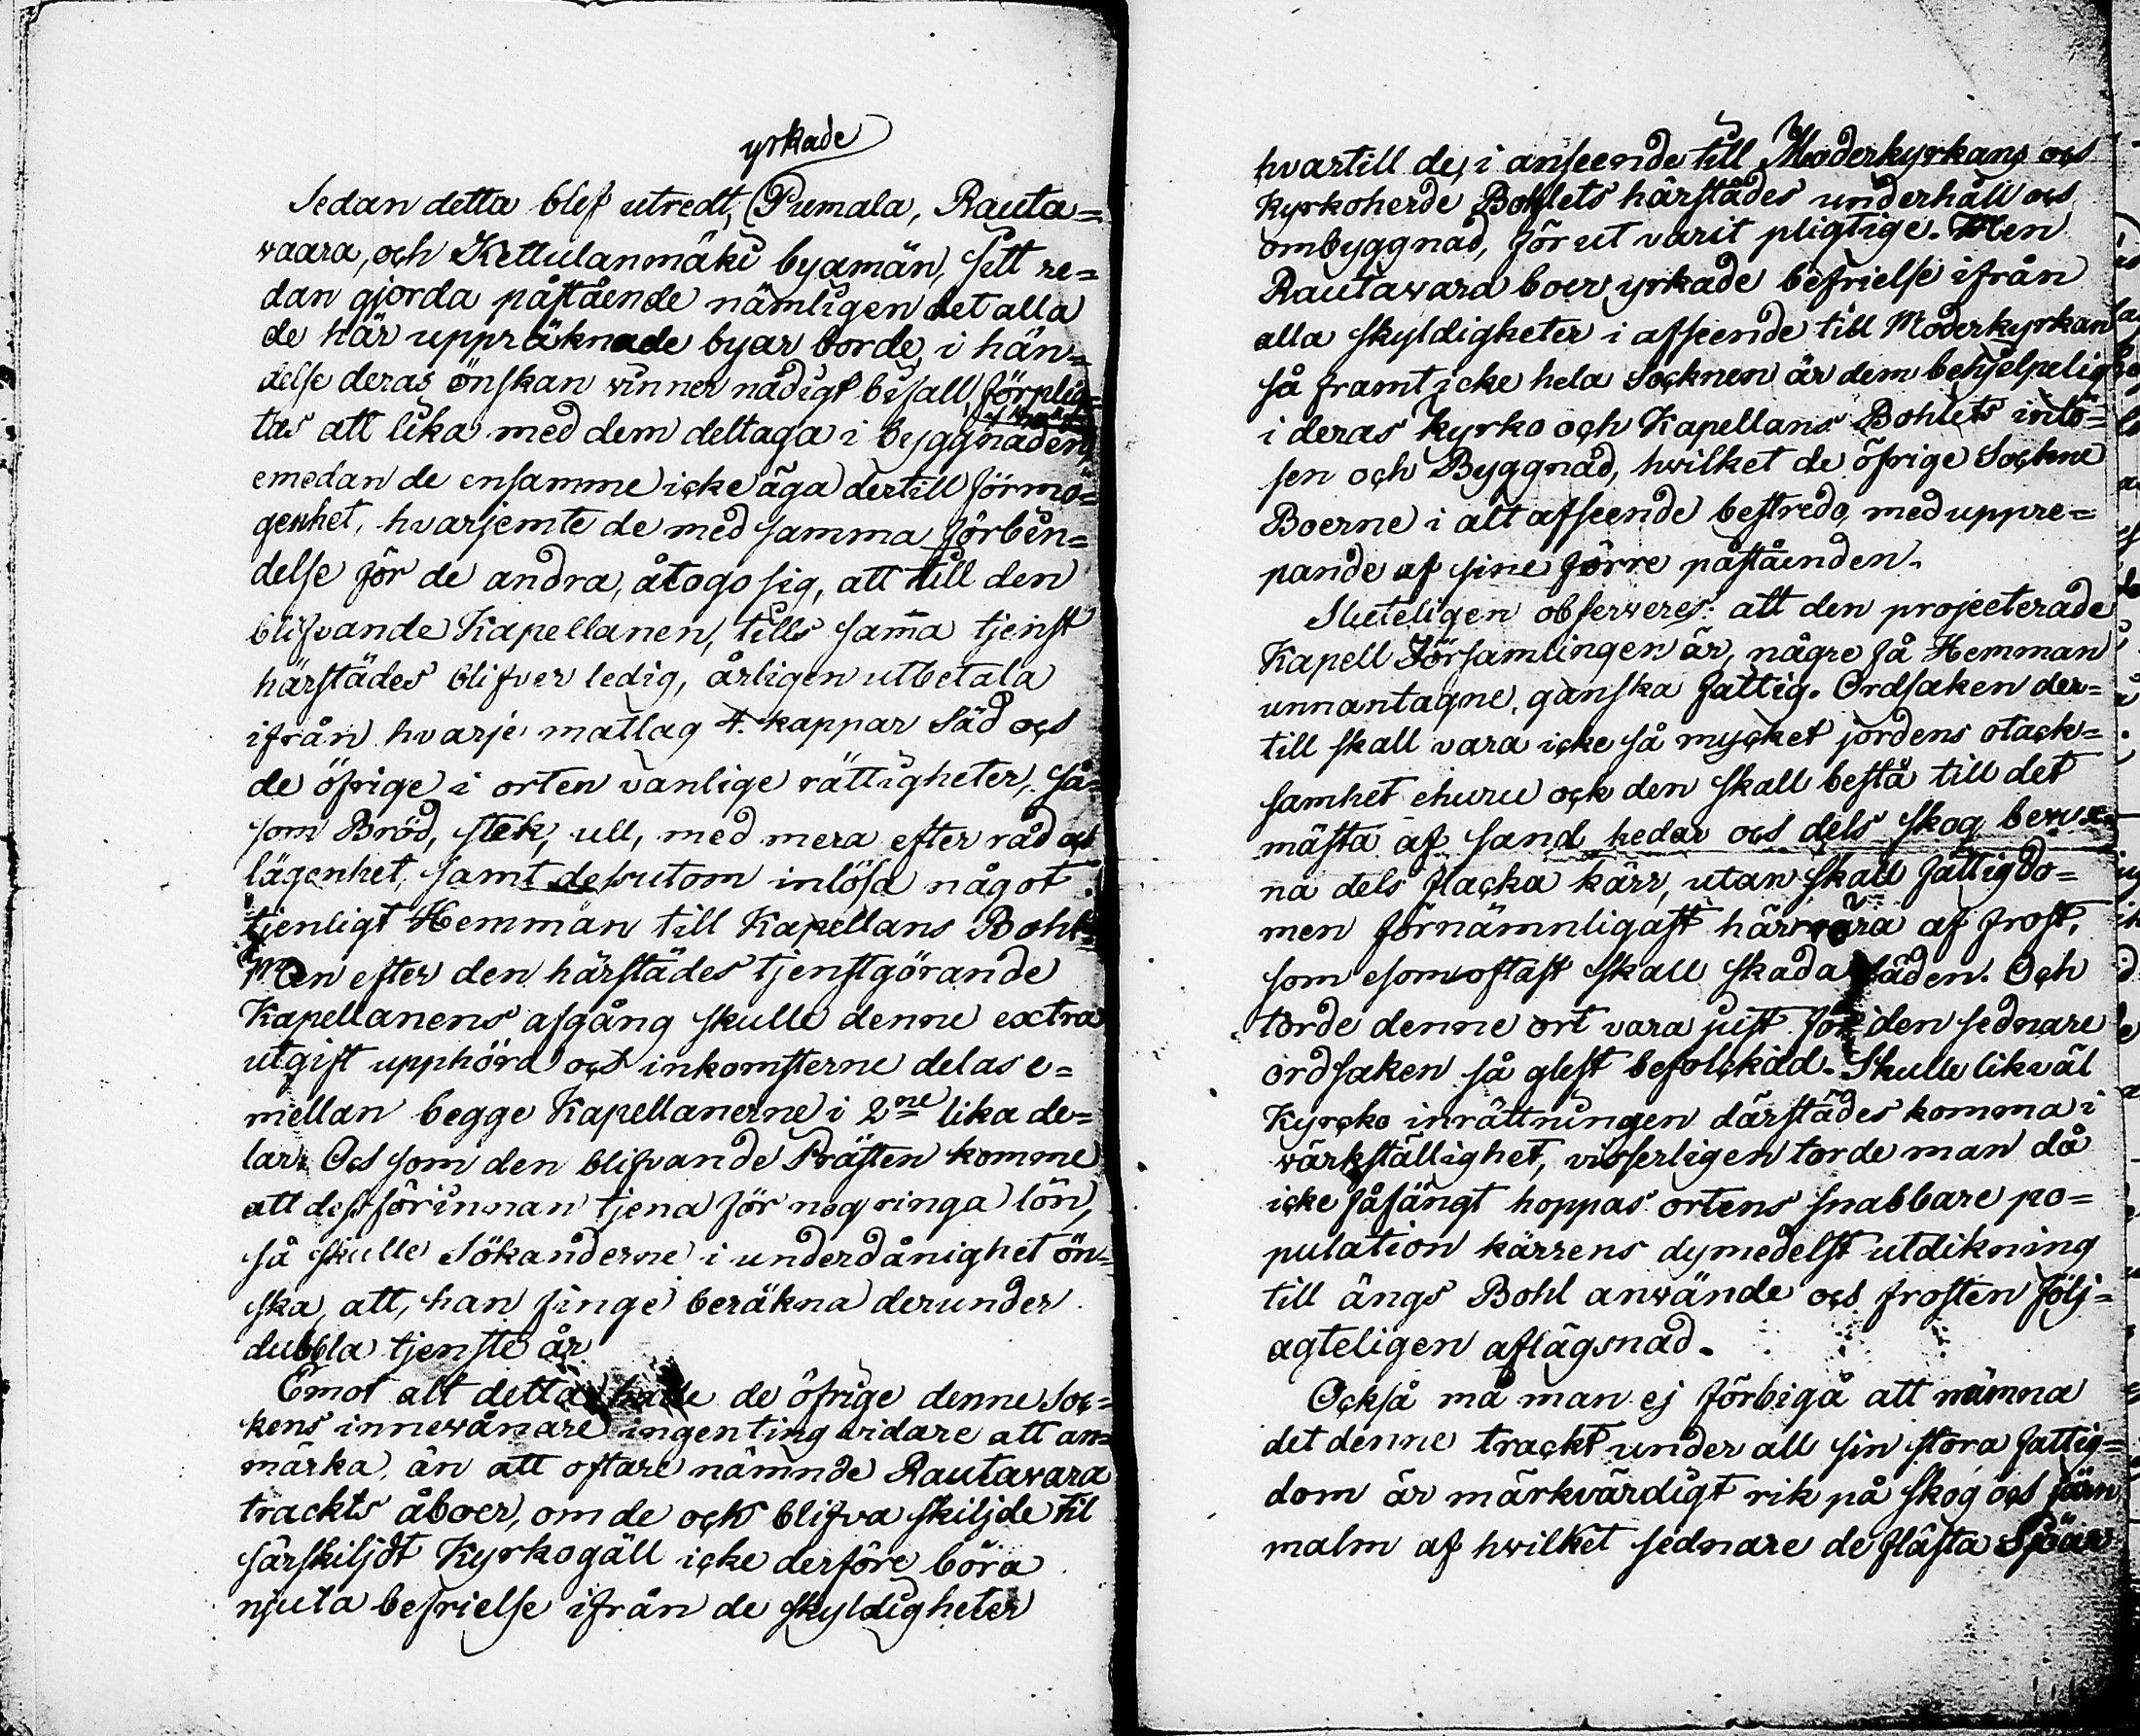 yrkade
Sedan detta blef utredt, Pumala, Rauta=
waara, och Kettulanmäki byamän, sitt re=
dan gjorda påstående nämligen det alla
de här uppräknade byar borde, i hän=
delse deras önskan vinner nådigt bifall, förplig=
tas att lika med dem deltaga i byggnaden,
emedan de ensamme icke äga dertill förmö=
genhet, hvarjemte de med samma förbin=
delse för de andra, åtogo sig, att till den
blifvande Kapellanen, tills sam̄a tjenst
härstädes blifver ledig, årligen utbetala
ifrån hvarje matlag 4. kappar Säd och
de öfrige i orten vanlige rättigheter, så=
som Bröd, stek, ull, med mera efter råd och
lägenhet, samt desutom inlösa något
tjenligt Hemman till Kapellans Bohl.
Men efter den härstädes tjenstgörande
Kapellanens afgång skulle denne extra
utgift upphöra och inkomsterne delas e=
mellan begge Kapellanerne i 2ne lika de=
lar. Och som den blifvande Prästen komme
att dessförinnan tjena för nog ringa lön,
så skulle Sökanderne i underdånighet ön=
ska, att, han finge beräkna derunder
dubbla tjenste år
Emot alt detta hade de öfrige denne Soc=
kens innevånare ingenting vidare att an=
märka, än att oftare nämnde Rautavara
trackts åboer, om de ock blifva skiljde til
särskiljdt Kyrkogäll icke derföre böra
njuta befrielse ifrån de skyldigheter
hvartill de, i anseende till Moderkyrkans och
Kyrkoherde Bohlets härstädes underhåll och
ombyggnad, förut varit pligtige. Men
Rautavara boer yrkade befrielse ifrån
alla skyldigheter i afseende till Moderkyrkan
så framt icke hela Socknen är dem behjelpelig
i deras kyrko och Kapellans Bohlets inlö=
sen och Byggnad, hwilket de öfrige Sockne
Boerne i alt afseende bestredo, med uppre=
pande af sine förre påståenden.
Sluteligen observeres: att den projecterade
Kapell Församlingen är, någre få Hemman
unnantagne, ganska fattig. Ordsaken der=
till skall vara icke så mycket jordens otack=
samhet ehuru ock den skall bestå till det
mästa af sand hedar och dels skog bevux=
na dels flacka kärr, utan skall fattigdo=
men förnämnligast härröra af frost,
som esomoftast skall skada säden. Och
torde denne ort vara just för den sednare
ordsaken så glest befolckad. Skulle likväl
Kyrcko inrättningen därstädes komma i
värkställighet, visserligen torde man då
icke fåfängt hoppas ortens snabbare po=
pulation kärrens dymedelst utdikning
till ängs Bohl använde och frosten följ=
agteligen aflägsnad.
Också må man ej förbigå att nämna
det denne trackt under all sin stora fattig=
dom är märkvärdigt rik på skog och järn
malm af hvilket sednare de flästa Sjöar